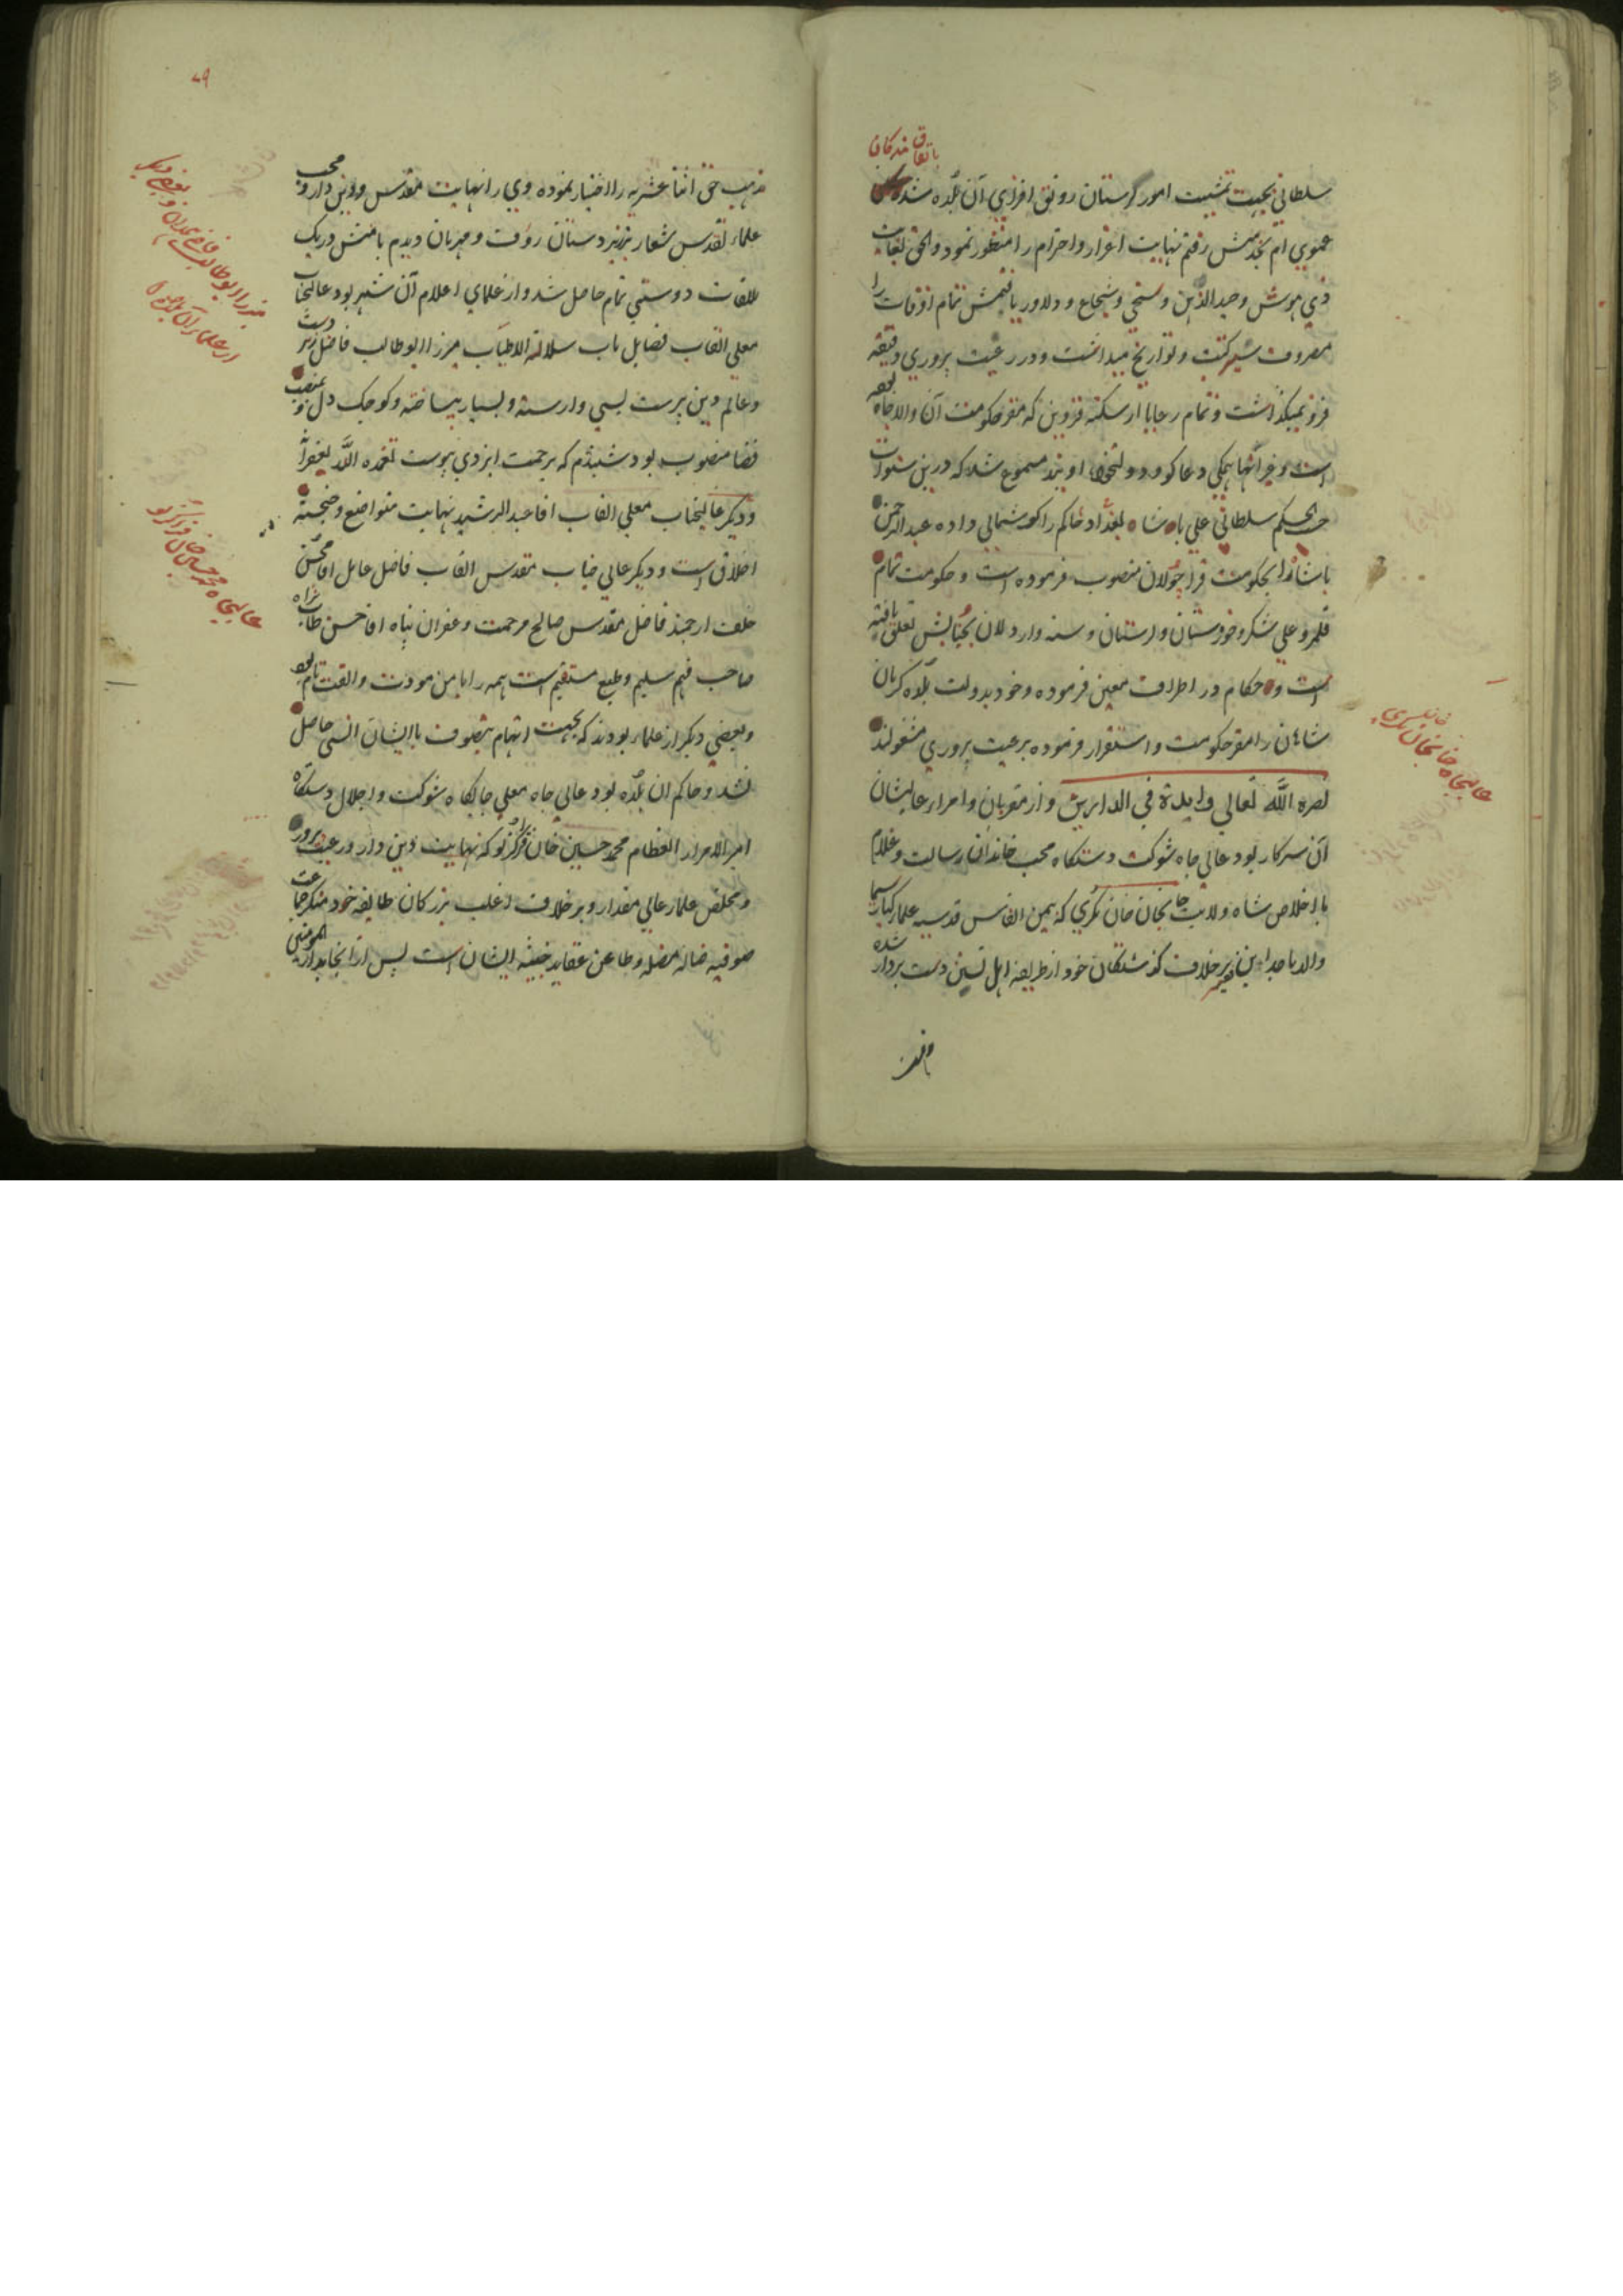 باتفاق بندکان
سلطانی بجهت تمشیت امور کرستان رونق افزای آن بلده شده
عموی ام بخدمتش رفتم نهایت اعزاز و احترام را منظور نمود و الحق بغایت
ذی هوش و جید الذهن و سخی و شجاع و دلاور یافتمش تمام اوقات را
مصروف سیر کتب و تواریخ میداشت و در رعیت پروری دقیقه
فرو نمیکذاشت و تمام رعایا از سکنه قزوین که مقر حکومت آن والاجاه
است و غیر انها همکی دعا کو و دولتخواه اویند مسموع شد که درین سنوات
حسب الحکم سلطانی علی پاشاه بغداد حاکم را کوشمالی داده عبد الرحمن
پاشا را بحکومت قراچولان منصوب فرموده است و حکومت تمام
قلمرو علی شکر و خوزستان و لرستان و سنه و اردلان بجنابش تعلق یافته
است و حکام در اطراف معین فرموده و خود بدولت بلده کرمان
شاهان را مقر حکومت و استقرار فرموده برعیت پروری مشغولند
نصره الله تعالی و ایده فی الدارین و از مقربان و امراء عالیشان
آن سرکار بود عالی جاه شوکت دستکاه محب خاندان رسالت و غلام
با اخلاص شاه ولایت خانجان خان که بیمن انفاس قدسیه علمار کبار سیما
والد ماجد این فقیر برخلاف کذشتکان خود از طریقه اهل تسنن دست بردار شده
عالیجاه خانجان خان
مذهب حق اثنا عشریه را اختیار نموده وی را نهایت مقدس و دین دار و محب
علماء تقدس شعار و بر زیر دستان رؤف و مهربان دیدم با منش در یک
ملاقات دوستی تمام حاصل شد و از علمای اعلام آن شهر بود عالیجناب
معلی القاب فضایل مآب سلالة الاطیاب میرزا ابوطالب فاضل زبر دست
و عالم دین پرست بسی وارسته و بسیار بیساخته و کوچک دل و بمنصب
قضا منصوب بود شنیدم که برحمت ایزدی پیوست تغمده الله بغفرانه
و دیکر عالیجناب معلی القاب اقا عبد الرشید نهایت متواضع و خجسته
اخلاق است و دیکر عالی جناب مقدس القاب فاضل عامل اقا محسن
خلف ارجمند فاضل مقدس صالح مرحمت و غفران پناه اقا حسن طاب ثراه
صاحب فهم سلیم و طبع مستقیم است همه را با من مودت و الفت تام بود
و بعضی دیکر از علماء بودند که بجهت اتهام بتصوف با ایشان انسی حاصل
نشد و حاکم ان بلده بود عالی جاه معلی جایکاه شوکت و اجلال دستکاه
امیر الامراء العظام محمد حسین خان قراکزلو که نهایت دین دار و رعیت پرور
و مخلص علمار عالی مقدار و برخلاف اغلب بزرکان طایفه خود منکر جماعت
صوفیه ضاله مضله و طاعن عقاید خبیثه ایشان است پس از انجا بدار المومنین
میرزا ابوطالب قاضی همدان
عالیجاه محمد حسین خان قراکزلو